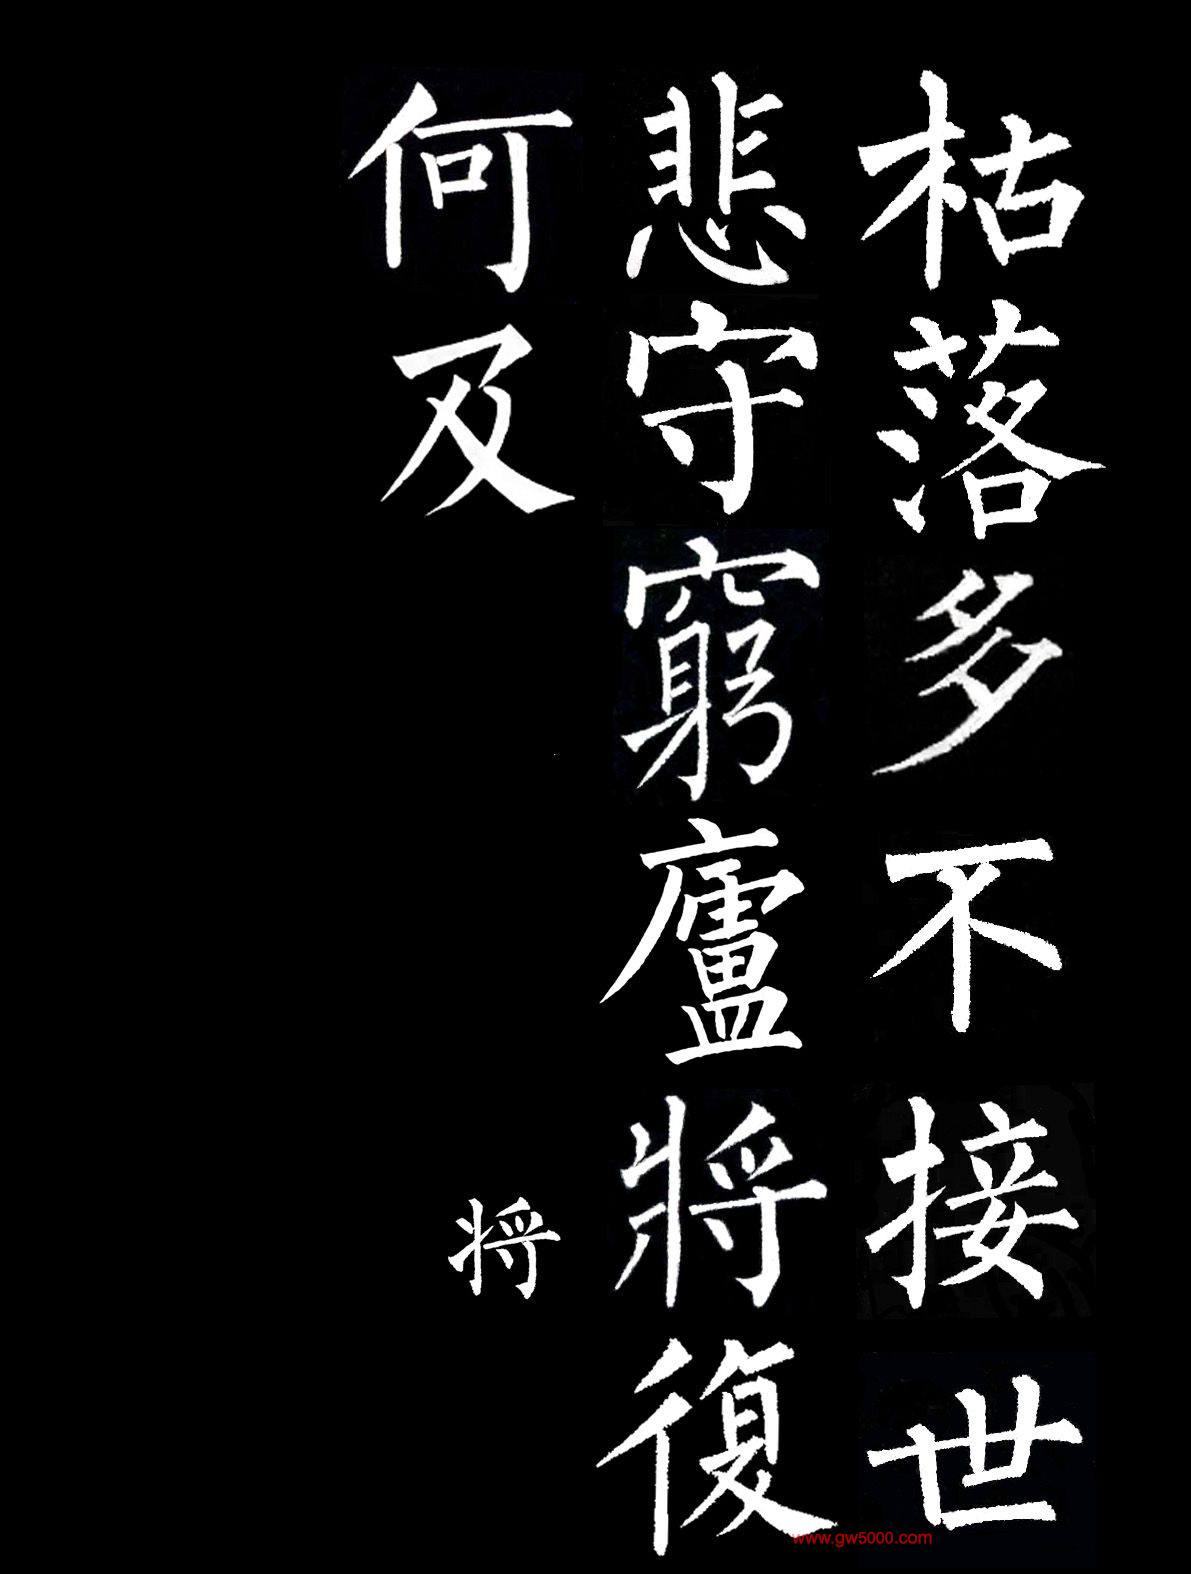 枯落多不接世
悲守窮廬將復
何及
将
www.gw5000.com